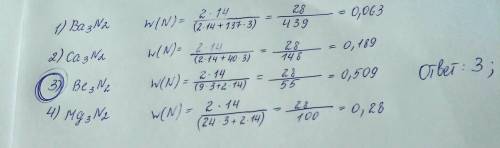 1) Ba₃N₂ W(N) = 2·14 / (2·14+137·3) = 28 / 439 = 0,063
2) Ca₃N₂ W(N) = 2·14 / (2·14+40·3) = 28 / 148 = 0,189
3) Be₃N₂ W(N) = 2·14 / (9·3+2·14) = 28 / 55 = 0,509 Ответ: 3;
4) Mg₃N₂ W(N) = 2·14 / (24·3+2·14) = 28 / 100 = 0,28